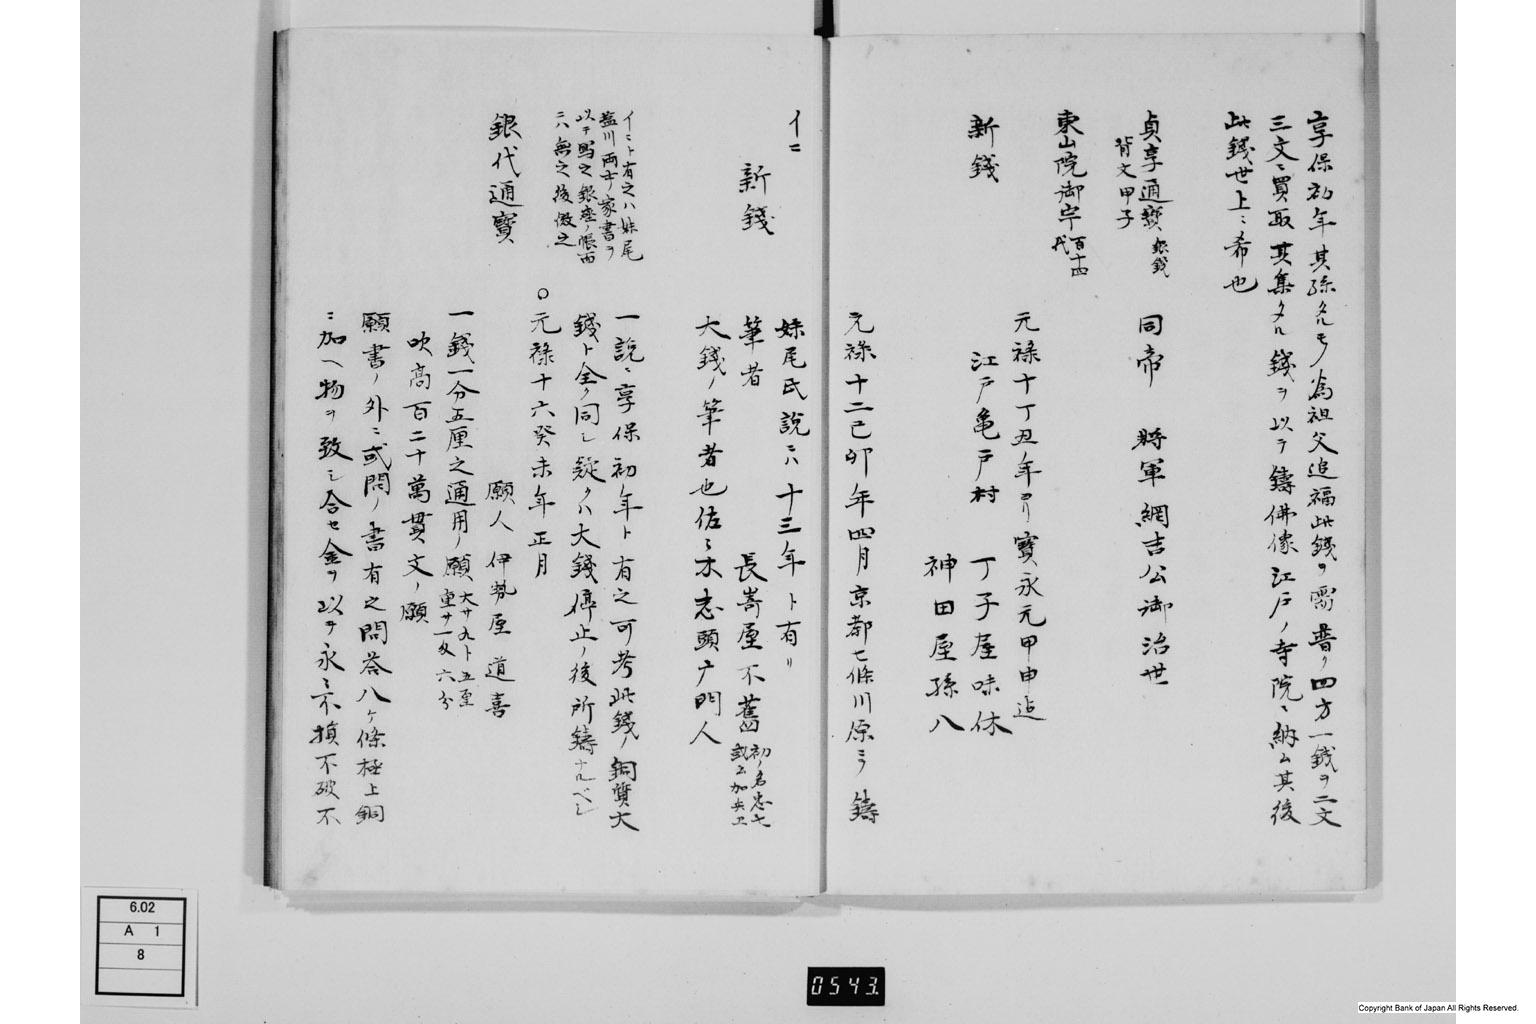 享保初年其孫タルモノ為祖父追福此錢ヲ需普ク四方一錢ヲ二文
三文ニ買取其集タル錢ヲ以テ鑄佛像江戸ノ寺院ニ納ム其後
此錢世上ニ希也
貞享通寳 銀錢 同帝 將軍綱吉公御治世
背文甲子
東山院御宇 百十四代
元禄十丁丑年ヨリ寳永元甲申迄
新錢 江戸亀戸村 丁子屋味休
神田屋孫八
元禄十二己卯年四月京都七條川原ニヲ鑄
イニ 妹尾氏説ニハ十三年ト有リ
新錢 筆者 長嵜屋不舊 初ノ名忠七
大錢ノ筆者也佐々木志頭广門人
イニト有之ハ妹尾
益川両士ノ家書ヲ
以テ寫之銀座ノ帳面
ニハ無之後倣之
一説ニ享保初年ト有之可考此錢ノ銅質大
錢ト全ク同シ疑クハ大錢停止ノ後所鑄ナルベシ
○元禄十六癸未年正月
銀代通寳 願人 伊勢屋道喜
一錢一分五厘之通用ノ願 大サ九ト五至 重サ一匁六分
吹高百二十萬貫文ノ願
願書ノ外ニ或問ノ書有之問答八ケ條極上銅
ニ加ヘ物ヲ致シ合セ金ヲ以テ永々不損不破不
6.02
A 1
8
0543.
Copyright Bank of Japan All Rights Reserved.